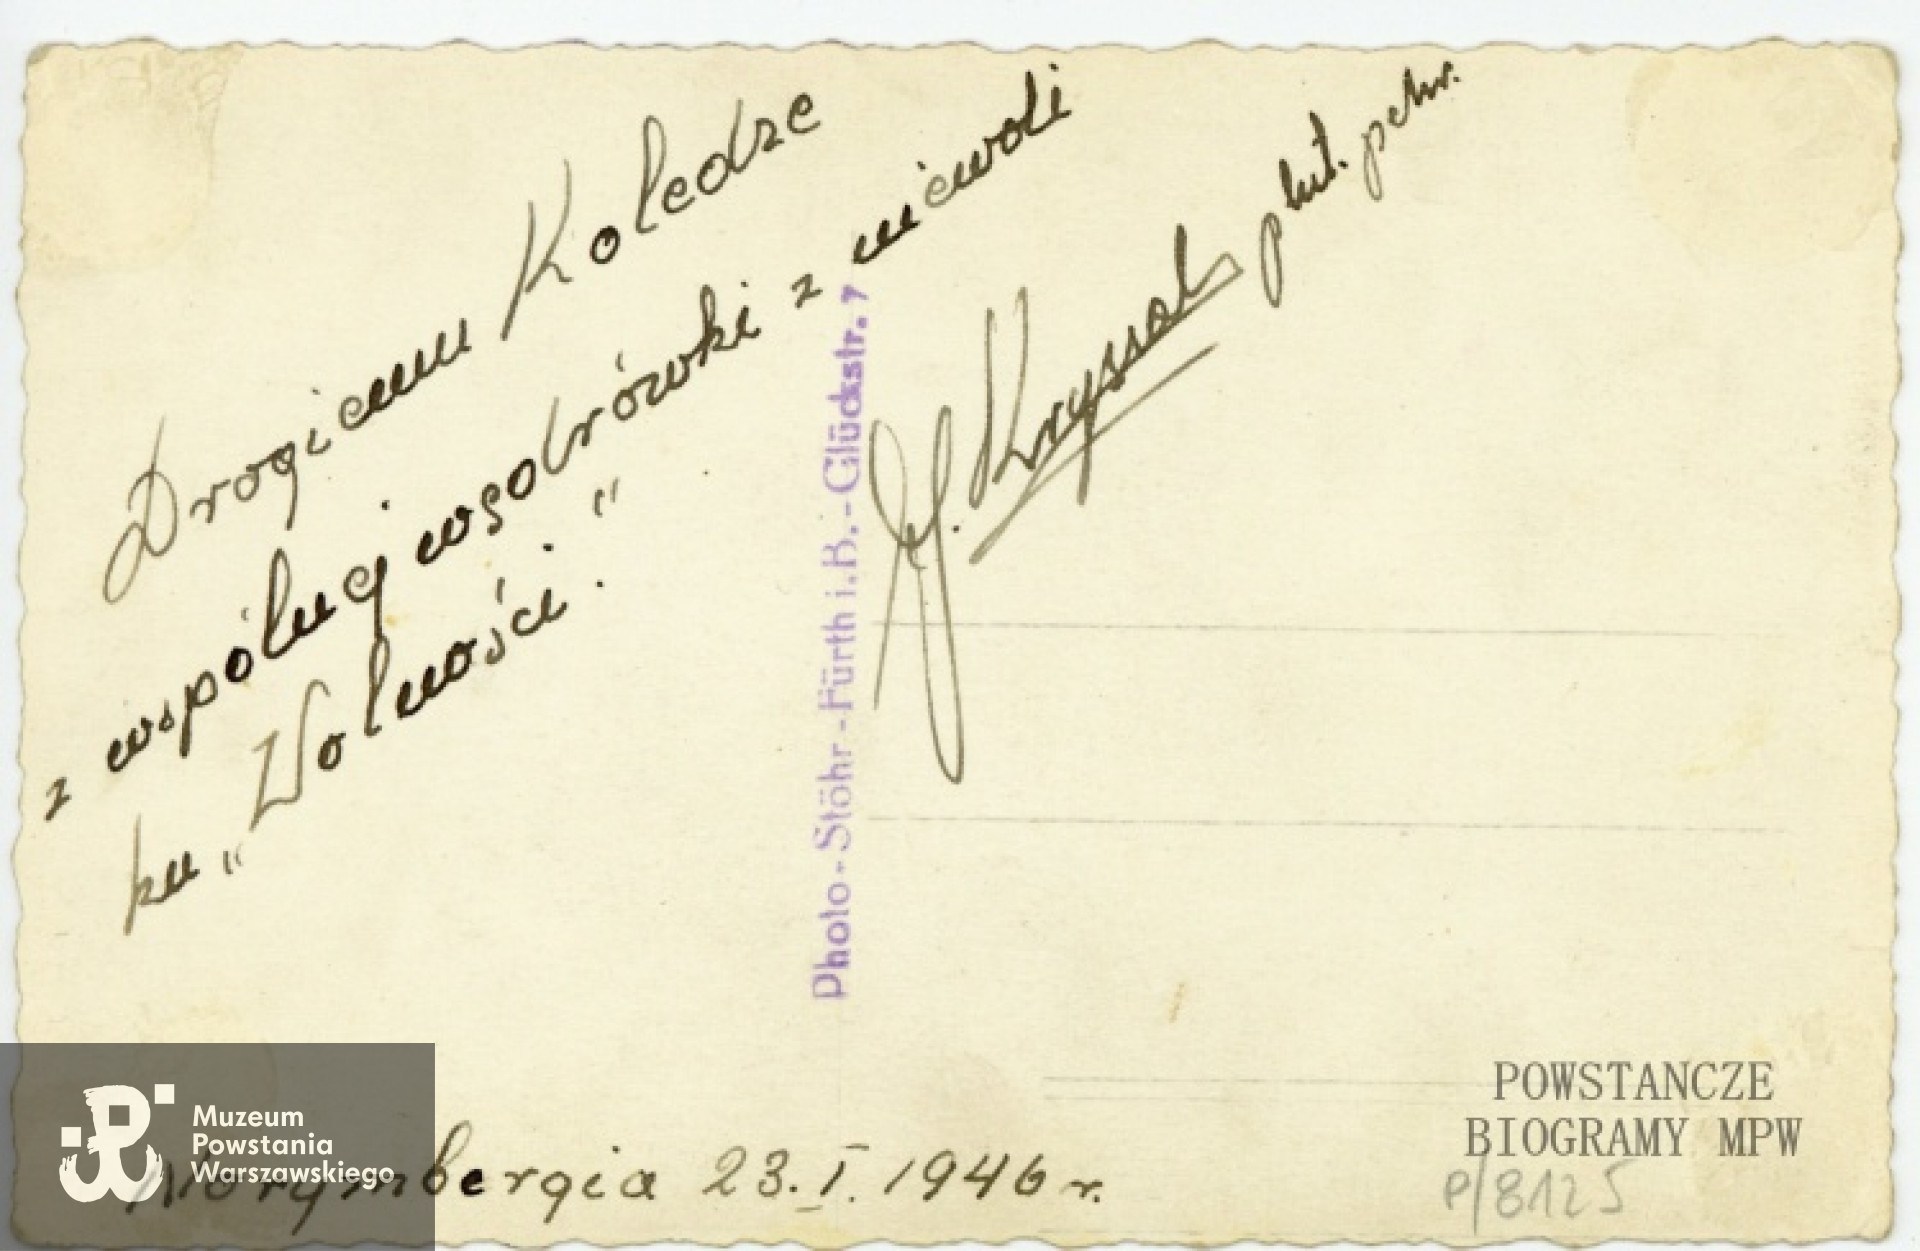 Drogiemu Koledze
z wspólnej wędrówki z niewoli
ku „Wolności".
Kryssal plut. pchr.
Photo-Stöhr-Fürth i.B.-Glückstr. 7
Norymbergia 23.I.1946 r.
Muzeum
Powstania
Warszawskiego
POWSTAŃCZE
BIOGRAMY MPW
P/8125